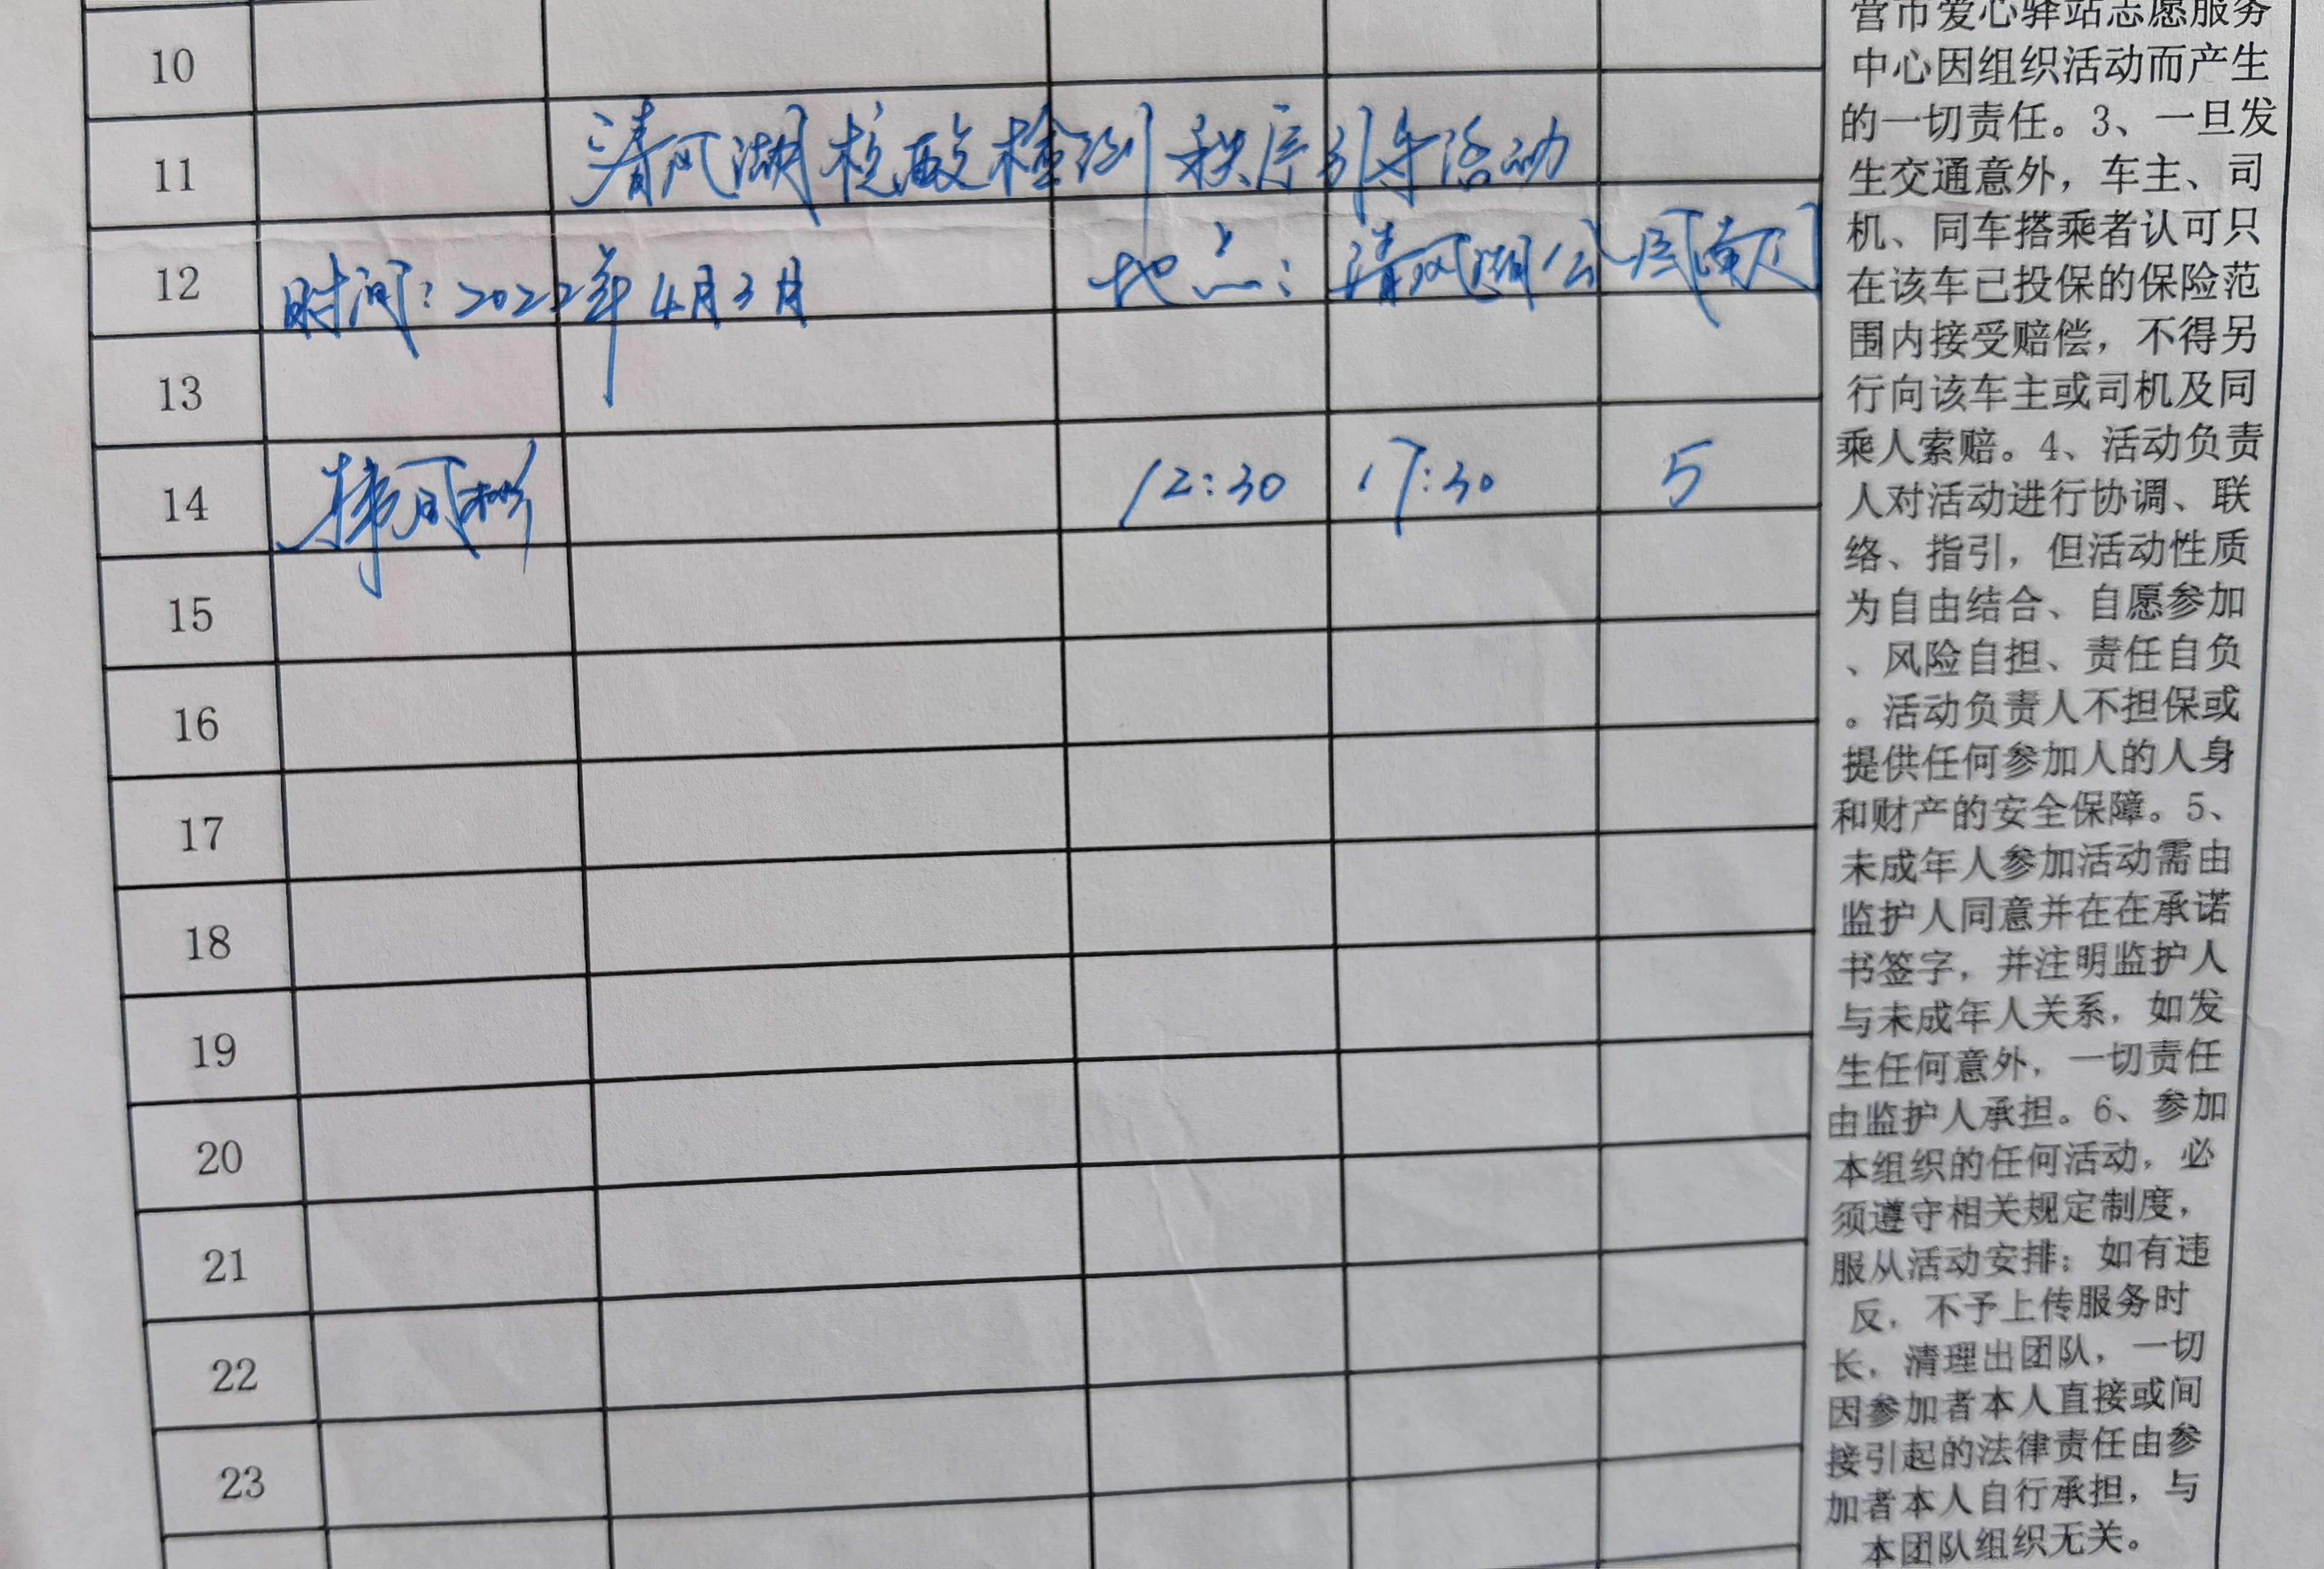 10
11 清风湖核酸检测秩序引导活动
12 时间：2022年4月3月 地点：清风湖公园南门
13
14 12:30 17:30 5
15
16
17
18
19
20
21
22
23
营市爱心驿站志愿服务
中心因组织活动而产生
的一切责任。3、一旦发
生交通意外，车主、司
机、同车搭乘者认可只
在该车已投保的保险范
围内接受赔偿，不得另
行向该车主或司机及同
乘人索赔。4、活动负责
人对活动进行协调、联
络、指引，但活动性质
为自由结合、自愿参加
、风险自担、责任自负
。活动负责人不担保或
提供任何参加人的人身
和财产的安全保障。5、
未成年人参加活动需由
监护人同意并在在承诺
书签字，并注明监护人
与未成年人关系，如发
生任何意外，一切责任
由监护人承担。6、参加
本组织的任何活动，必
须遵守相关规定制度，
服从活动安排；如有违
反，不予上传服务时
长，清理出团队，一切
因参加者本人直接或间
接引起的法律责任由参
加者本人自行承担，与
本团队组织无关。